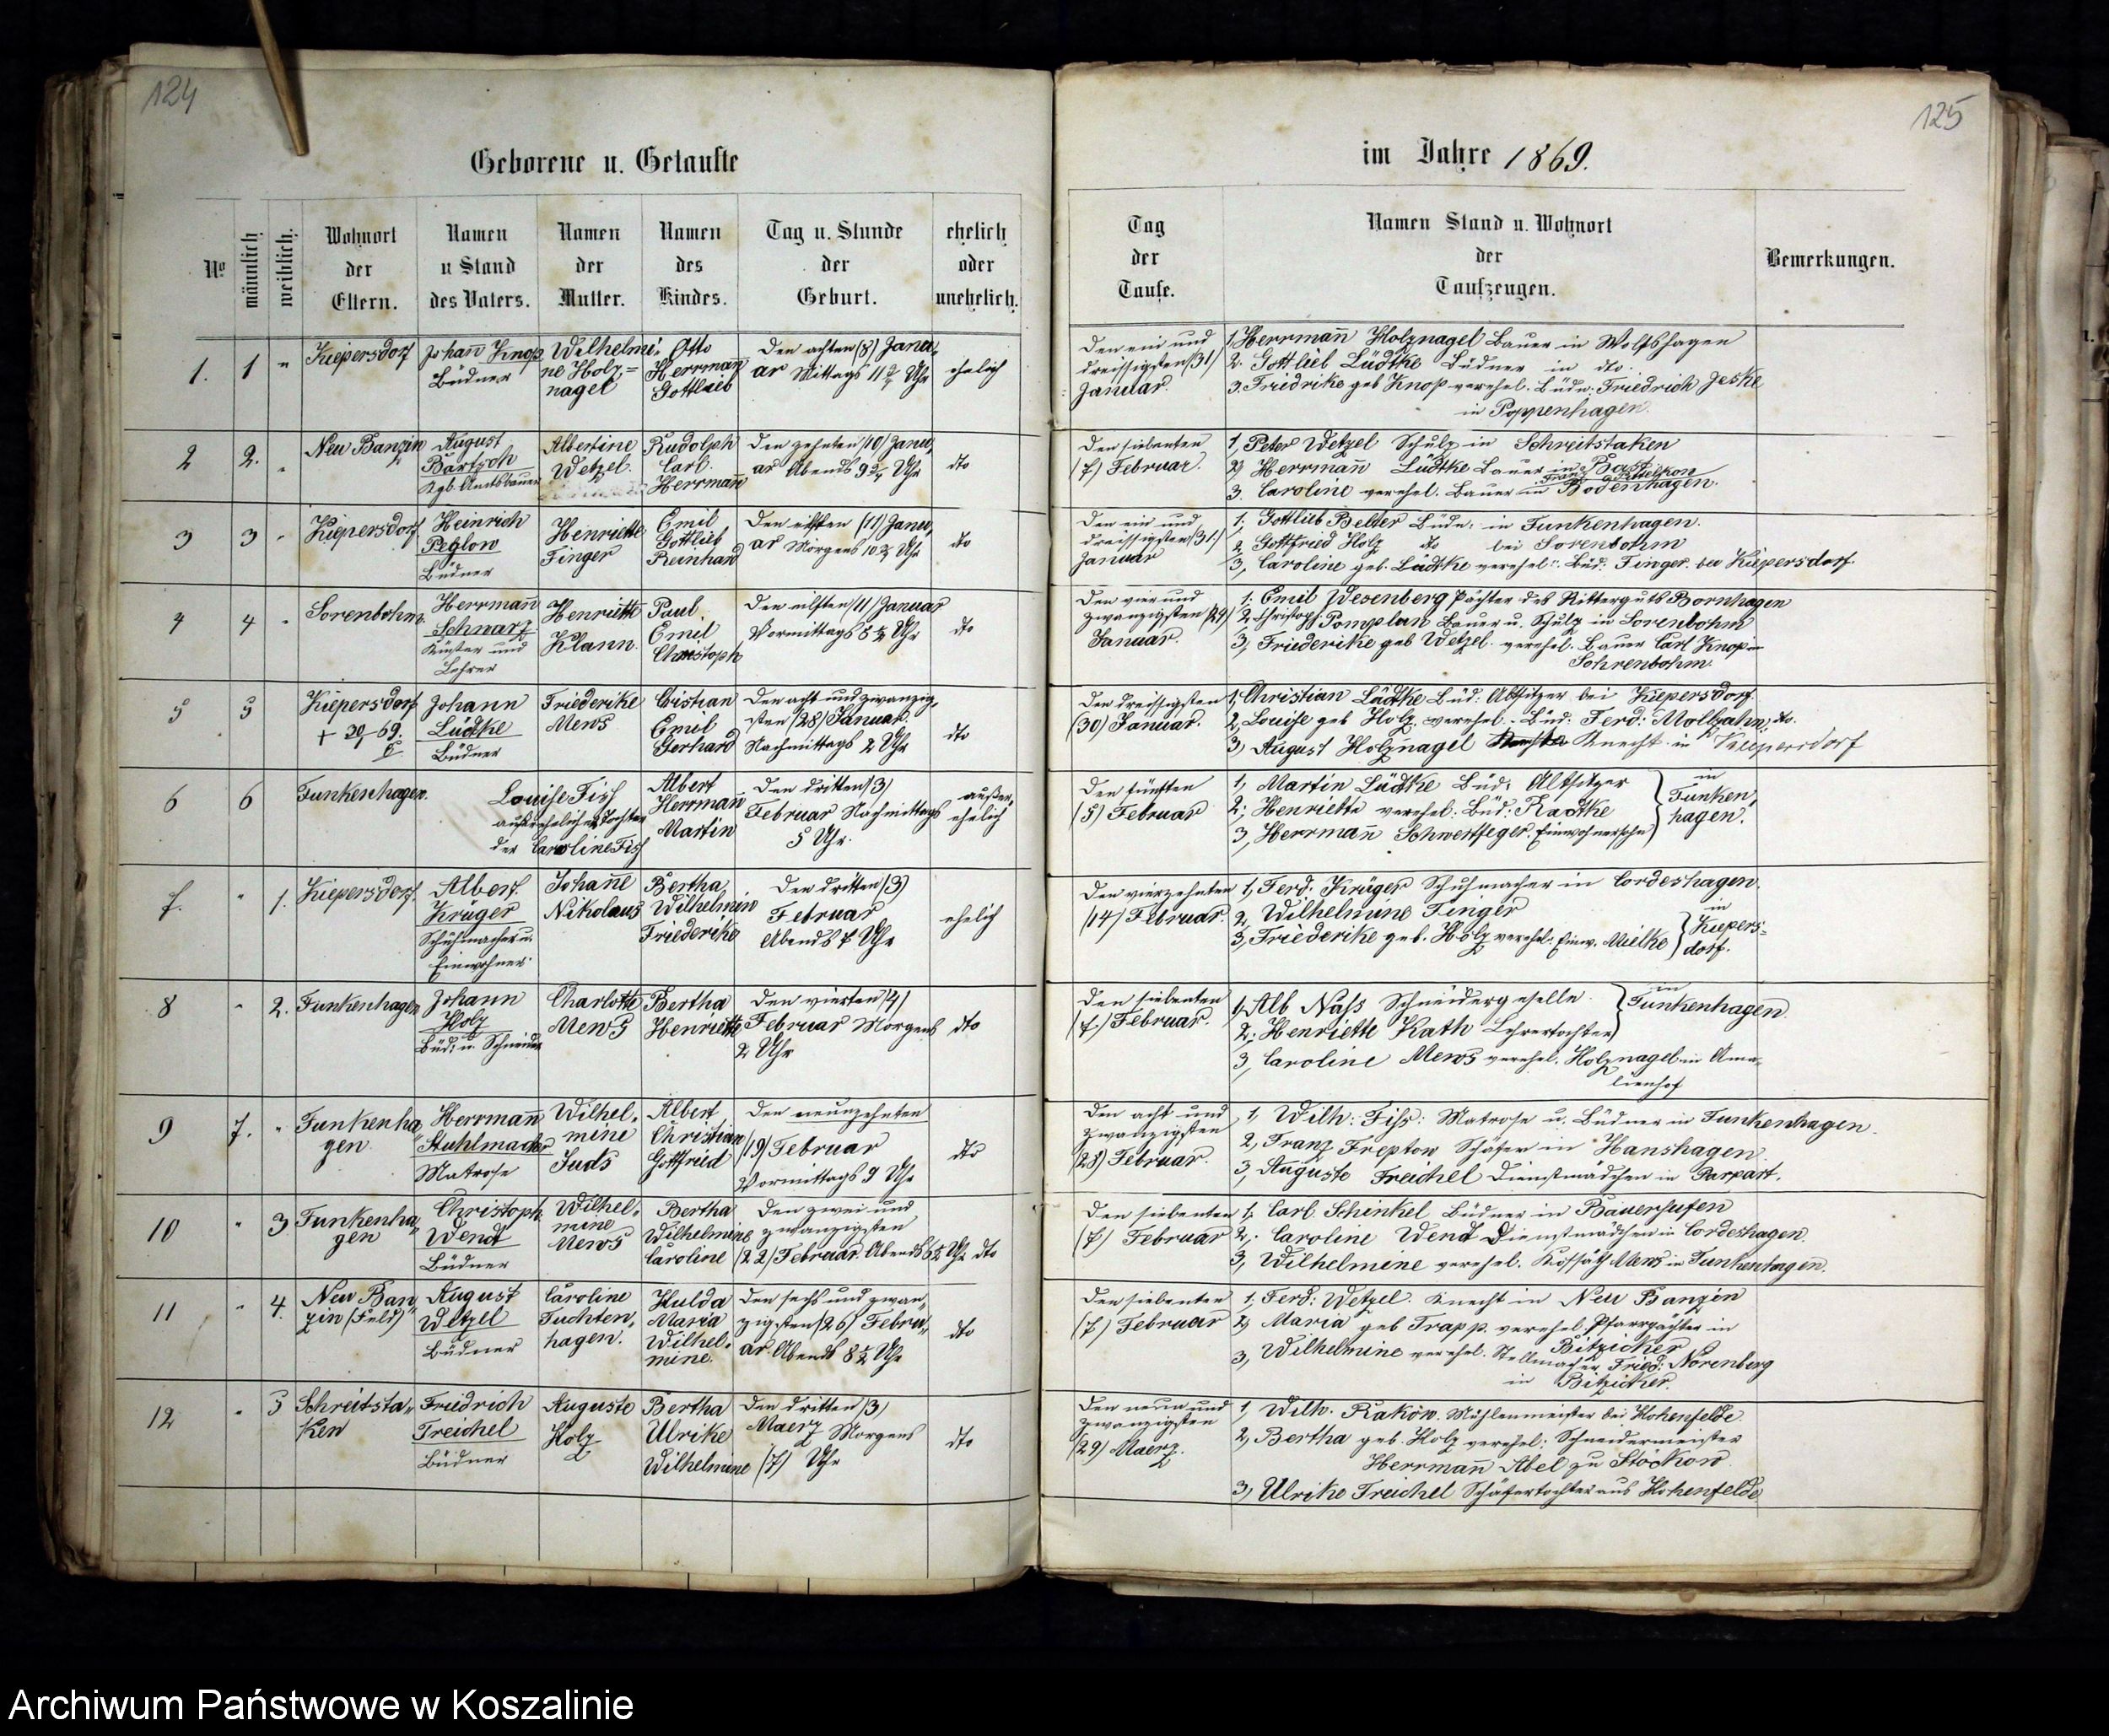 124
Geborene u. Getaufte
No
männlich
weiblich.
Wohnort
der
Eltern.
Namen
u Stand
des Vaters.
Namen
der
Mutter.
Namen
des
Kindes.
Tag u. Stunde
der
Geburt.
ehelich
oder
unehelich.
1.
1
"
Kiepersdorf
Johan̄ Knop
Büdner
Wilhelmi-
ne Holz=
nagel
Otto
Herrman̄
Gottlieb
Den achten (8) Janu-
ar Mittags 11 Uhr
ehelich
2
2.
"
Neu Banzin
August
Bartsch
Kgl. Amtsbauer
Albertine
Wetzel.
Rudolph
Carl.
Herrman̄
Den zehnten (10) Janu-
ar Abends 9 Uhr
dto
3
3
"
Kiepersdorf
Heinrich
Peglow
Büdner
Henriette
Finger
Emil
Gottlieb
Reinhard
Den eilften (11) Janu-
ar Morgens 10 Uhr
dto
4
4
"
Sorenbohm
Herrman̄
Schwarz
Küster und
Lehrer
Henriette
Klann.
Paul
Emil
Christoph
Den eilften (11) Januar
Vormittags 8 ½ Uhr
dto
5
5
Kiepersdorf
+ 30,-69.
Johann
Lüdke
Büdner
Friederike
Mews
Cristian
Emil
Gerhard
Den acht und zwanzig-
sten (28) Januar.
Nachmittags 2 Uhr
dto
6
6
Funkenhagen.
Louise Fiss
außerehelichen Tochter
der Caroline Fiss
Albert
Herrman̄
Martin
Den dritten (3)
Februar Nachmittags
5 Uhr.
außer-
ehelich
7.
"
1.
Kiepersdorf.
Albert
Krüger
Schuhmacher u.
Einwohner
Johan̄e
Nikolaus
Bertha
Wilhelmin
Friederike
Den dritten (3)
Februar
Abends 7 Uhr
ehelich
8
"
2.
Funkenhagen
Johann
Holz
Büd: u. Schneider
Charlotte
Mews
Bertha
Henriette
Den vierten (4)
Februar Morgens
2 Uhr
dto
9
7.
"
Funkenha
gen
Herrman̄
Stuhlmacher
Matrose
Wilhel-
mine
Juds
Albert
Christian
Gottfried
Den neunzehnten
(19) Februar
Vormittags 9 Uhr
dto
10
"
3
Funkenha
gen
Christoph
Wendt
Büdner
Wilhel-
mine
Mews
Bertha
Wilhelmine
Caroline
Den zwei und
zwanzigsten
(22) Februar Abends 6 ½ Uhr
dto
11
"
4.
Neu Ban-
zin (Feld)
August
Wetzel
Büdner
Caroline
Tuchten-
hagen.
Hulda
Maria
Wilhel-
mine.
Den sechs und zwan-
zigsten (26) Febru-
ar Abends 8 ½ Uhr
dto
12
"
5
Schreitsta-
ken
Friedrich
Treichel
Büdner
Auguste
Holz
Bertha
Ulrike
Wilhelmine
Den dritten (3)
Maerz Morgens
(7) Uhr
dto
125
im Jahre 1869.
Tag
der
Taufe.
Namen Stand u. Wohnort
der
Taufzeugen.
Bemerkungen.
Den ein und
dreissigsten (31)
Januar.
1, Herrman̄ Holznagel Bauer in Wolfshagen
2. Gottlieb Lüdtke Büdner in dto.
3. Friedrike geb Knop verehel. Büdn: Friedrich Jeske
in Poppenhagen.
Den siebenten
(7) Februar.
1, Peter Wetzel Schulz in Schreitstaken
2) Herrman̄ Lüdtke Bauer in Bast
3. Caroline verehel. Bauer in Bodenhagen.
Den ein und
dreissigsten (31)
Januar
1; Gottlieb Belter Büdn: in Funkenhagen.
2, Gottfried Holz dto bei Sorenbohm
3, Caroline geb. Lüdtke verehel: Büd: Finger. bei Kiepersdorf.
Den vier und
zwanzigsten (24)
Januar.
1; Emil Wesenberg Pächter des Ritterguts Bornhagen
2, Christoph Pomplun Bauer u. Schulz in Sorenbohm
3, Friederike geb Wetzel verehel. Bauer Carl Knop in
Sohrenbohm.
Den dreissigsten
(30) Januar.
1, Christian Lüdtke Büd: Altsitzer bei Kiepersdorf
2, Louise geb Holz verehel. Büd: Ferd: Moltzahn, dto.
3, August Holznagel Knecht in Kiepersdorf
Den fünften
(5) Februar
1, Martin Lüdtke Büd: Altsitzer
2; Henriette verehel. Büd: Radtke
3, Herrman̄ Schwertfeger Einwohnersohn
in
Funken-
hagen.
Den vierzehnten
(14) Februar.
1, Ferd. Krüger Schuhmacher in Cordeshagen.
2, Wilhelmine Finger
3, Friederike geb. Holz verehel. Einw. Mielke
in
Kiepers-
dorf.
Den siebenten
(7.) Februar.
1, Alb Näss Schneidergeselle
2; Henriette Kath Lehrertochter
in
Funkenhagen.
3, Caroline Mews verehel. Holznagel in Ama-
lienhof
Den acht und
zwanzigsten
(28) Februar.
1, Wilh: Fiss: Matrose u. Büdner in Funkenhagen.
2, Franz Treptow Schäfer in Hanshagen
3, Auguste Treichel Dienstmädchen in Parpart.
Den siebenten
(7) Februar
1; Carl Schinkel Büdner in Bauerhufen
2; Caroline Wend Dienstmädchen in Cordeshagen.
3, Wilhelmine verehel. Kossäth Mews in Funkenhagen.
Den siebenten
(7) Februar
1, Ferd: Wetzel. Knecht in Neu Banzin
2) Maria geb Trapp verehel. Pfarrpächter in
Bitzicker
3, Wilhelmine verehel. Stellmacher Fried: Norenberg
in Bitzicker.
Den neun und
zwanzigsten
(29) Maerz.
1, Wilh. Rakow. Mühlenmeister bei Hohenfelde.
2, Bertha geb. Holz verehel: Schneidermeister
Herrman̄ Abel zu Stöckow.
3, Ulrike Treichel Schäfertochter aus Hohenfelde
Archiwum Państwowe w Koszalinie